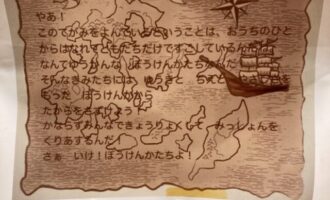 やあ！
このてがみをよんでいるということは、おうちのひと
からはなれてともだちだけですごしているんだね
なんてゆうかんな ぼうけんかたちなんだ
そんなきみたちには、ゆうきと ちえと
もった ぼうけんかから
たからをさずけよう
かならずみんなできょうりょくして みっしょんを
くりあするんだ！
さあ いけ！ぼうけんかたちよ！